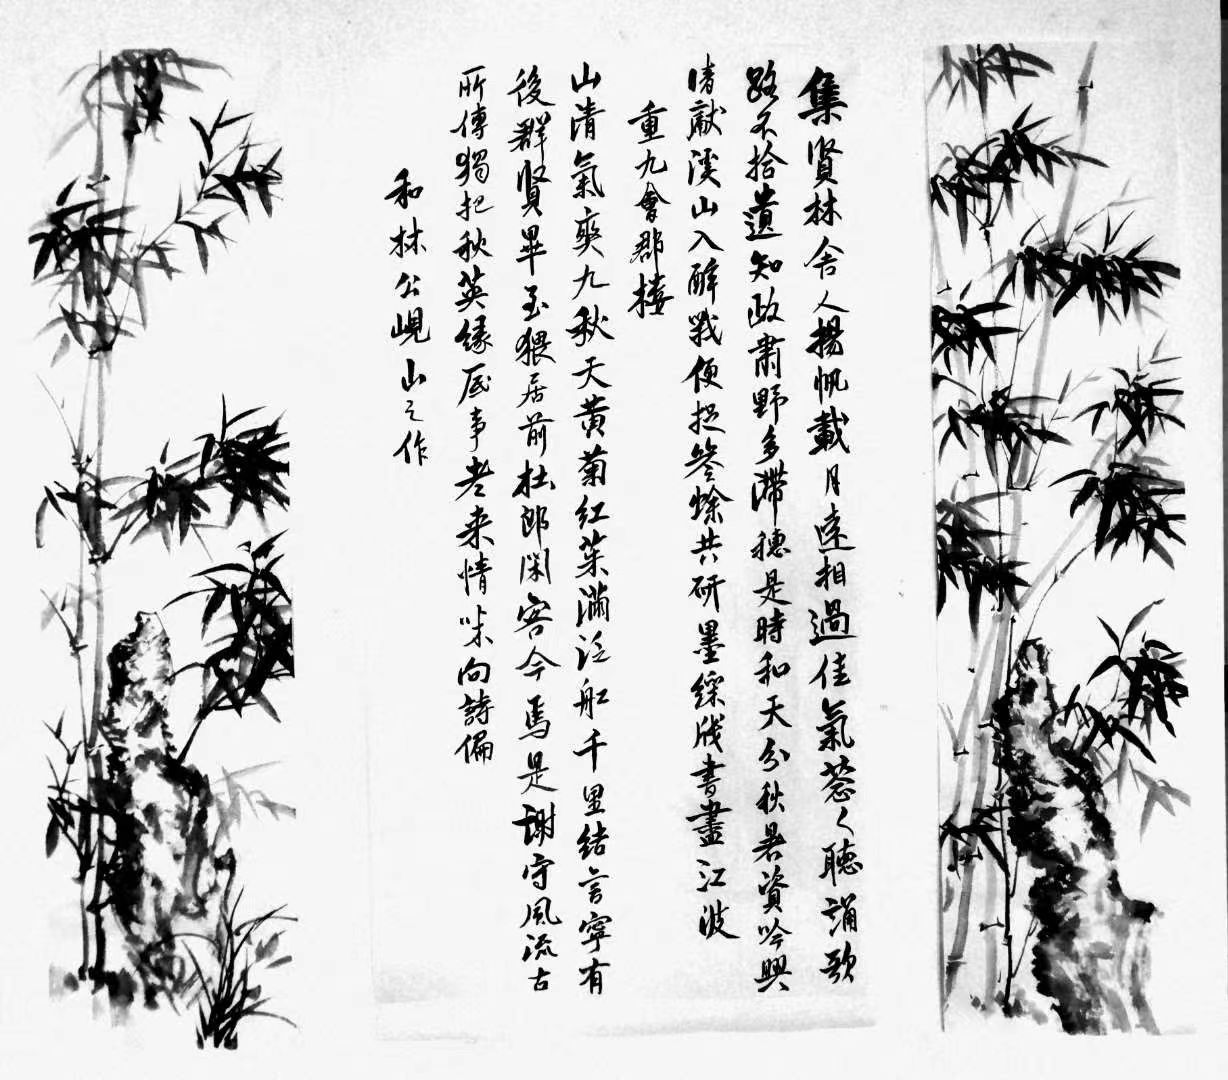 集賢林舍人揚帆載月遠相過佳氣葱々聽誦歌
路不拾遺知政肅野多滯穗是時和天分秋暑資吟興
晴獻溪山入醉哦便捉蟾蜍共研墨綵牋書盡江波
重九會郡樓
山清氣爽九秋天黄菊紅茱滿泛船千里結言寧有
後群賢畢至猥居前杜郎閑客今焉是謝守風流古
所傳獨把秋英緣底事老来情味向詩偏
和林公峴山之作